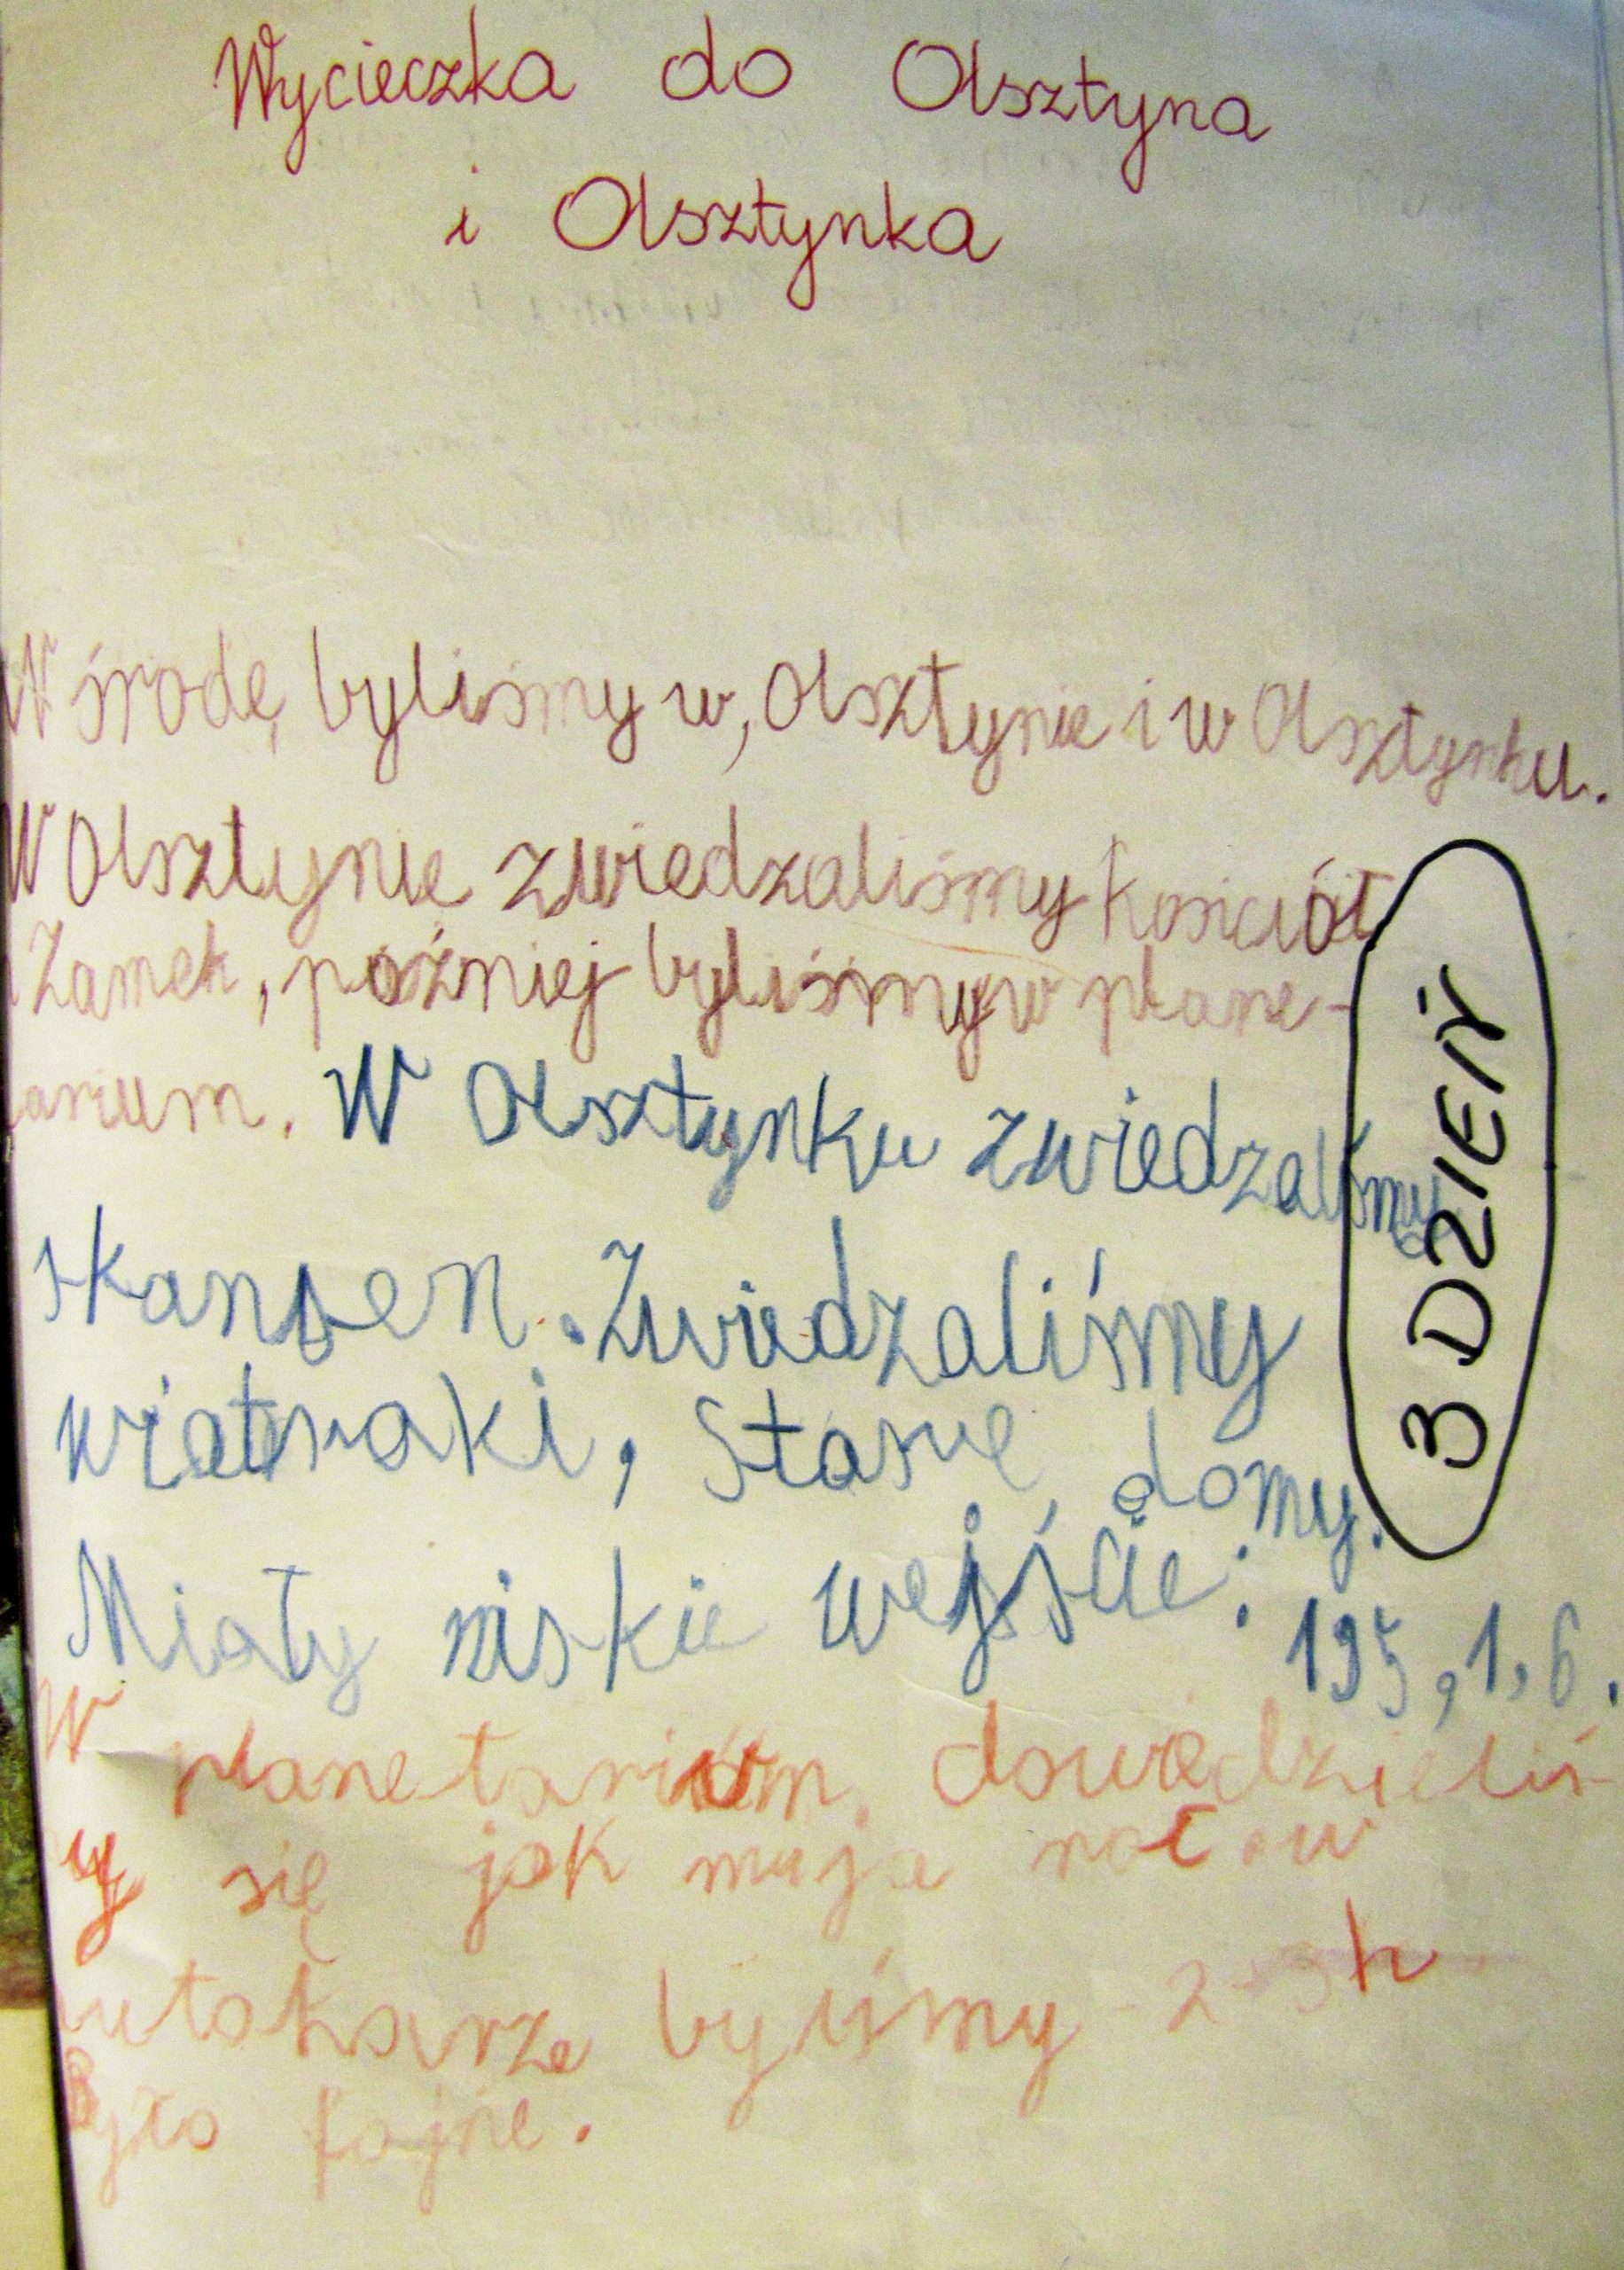 Wycieczka do Olsztyna
i Olsztynka
W środę, byliśmy w, Olsztynie i w Olsztynku.
W Olsztynie zwiedzaliśmy kościół
i Zamek, poźniej byliśmy w plane-
tarium. W Olsztynku zwiedzaliśmy
skansen. Zwiedzaliśmy
wiatraki, Stare domy.
Miały niskie wejście: 195, 1,6.
W planetarium, dowiedzieliś-
my się jak mija
autokarze byliśmy 2-3h
Było fajne.
3 DZIEŃ